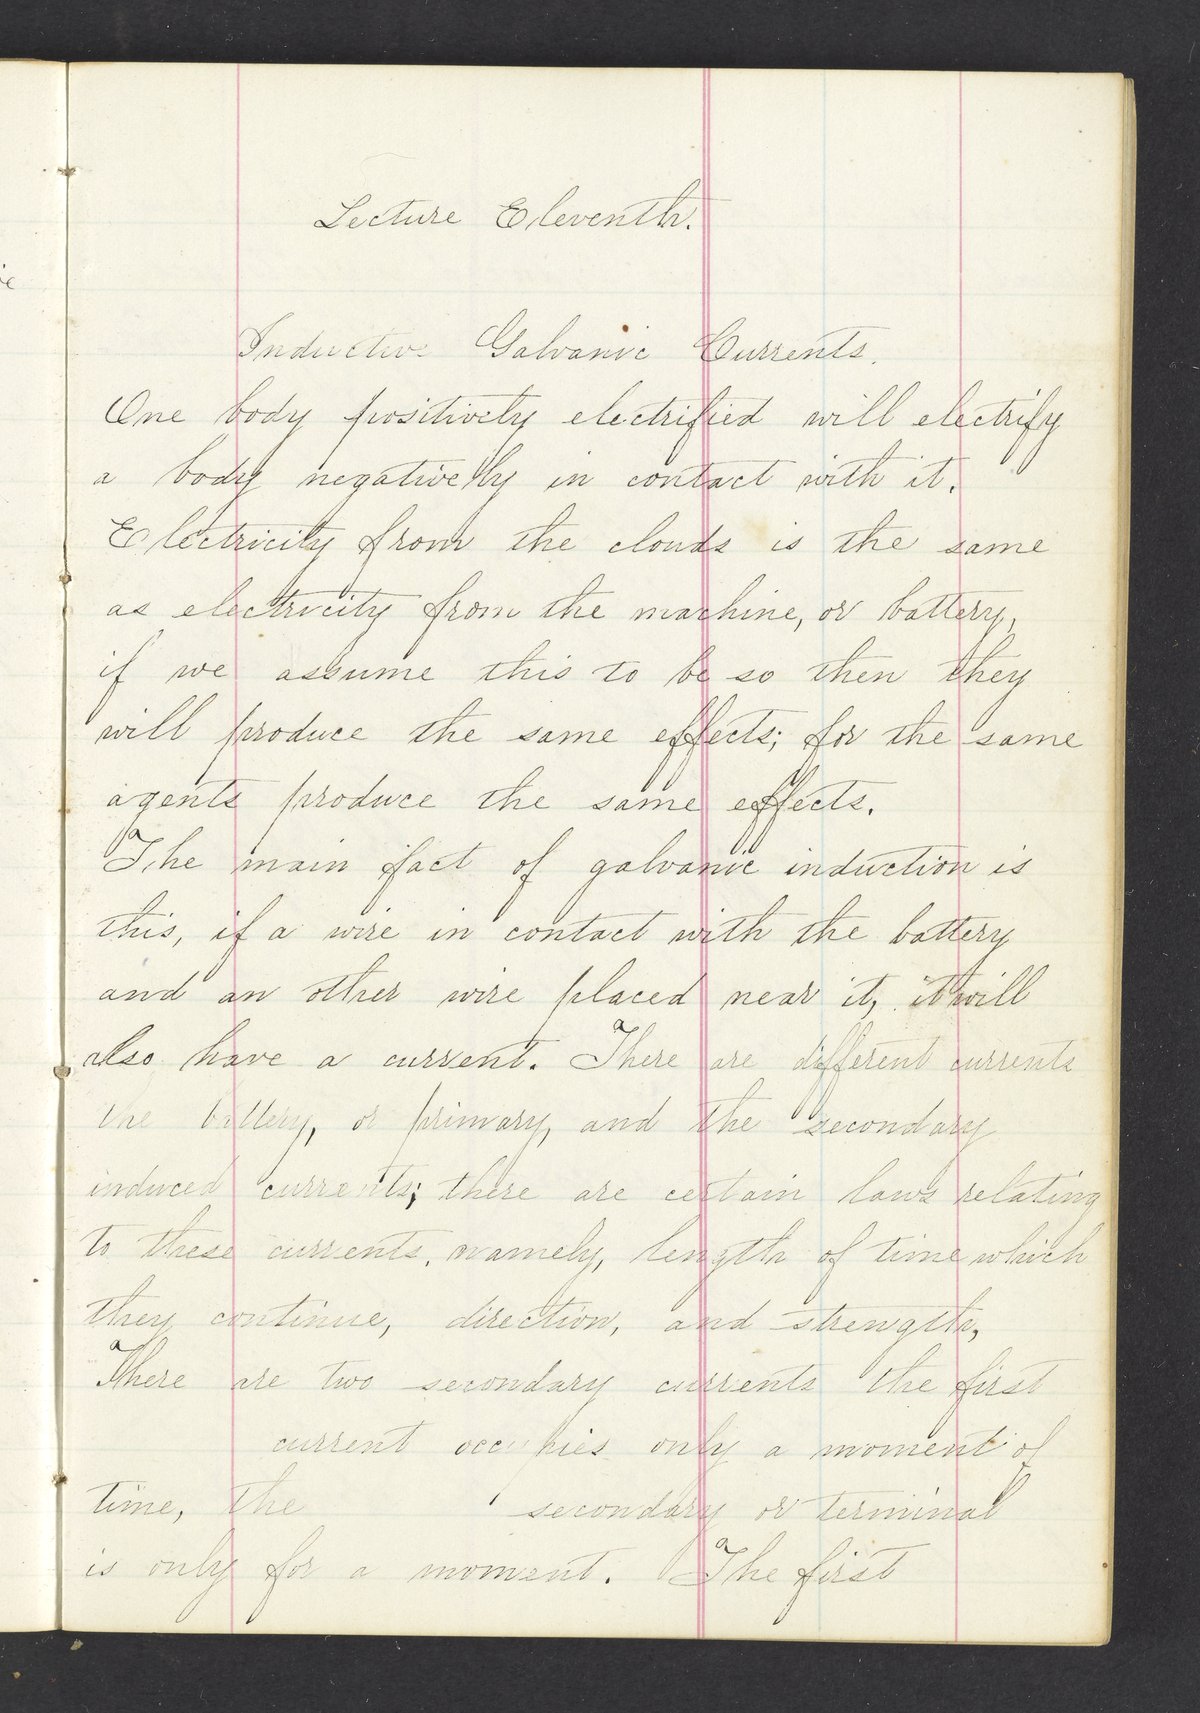 Lecture Eleventh.
Inductive Galvanic Currents.
One body positively electrified will electrify
a body negatively in contact with it.
Electricity from the clouds is the same
as electricity from the machine, or battery,
if we assume this to be so then they
will produce the same effects; for the same
agents produce the same effects.
The main fact of galvanic induction is
this, if a wire in contact with the battery
and an other wire placed near it, it will
also have a current. There are different currents
the battery, or primary, and the secondary
induced currents; there are certain laws relating
to these currents, namely, length of time which
they continue, direction, and strength,
There are two secondary currents the first
current occupies only a moment of
time, the secondary or terminal
is only for a moment. The first